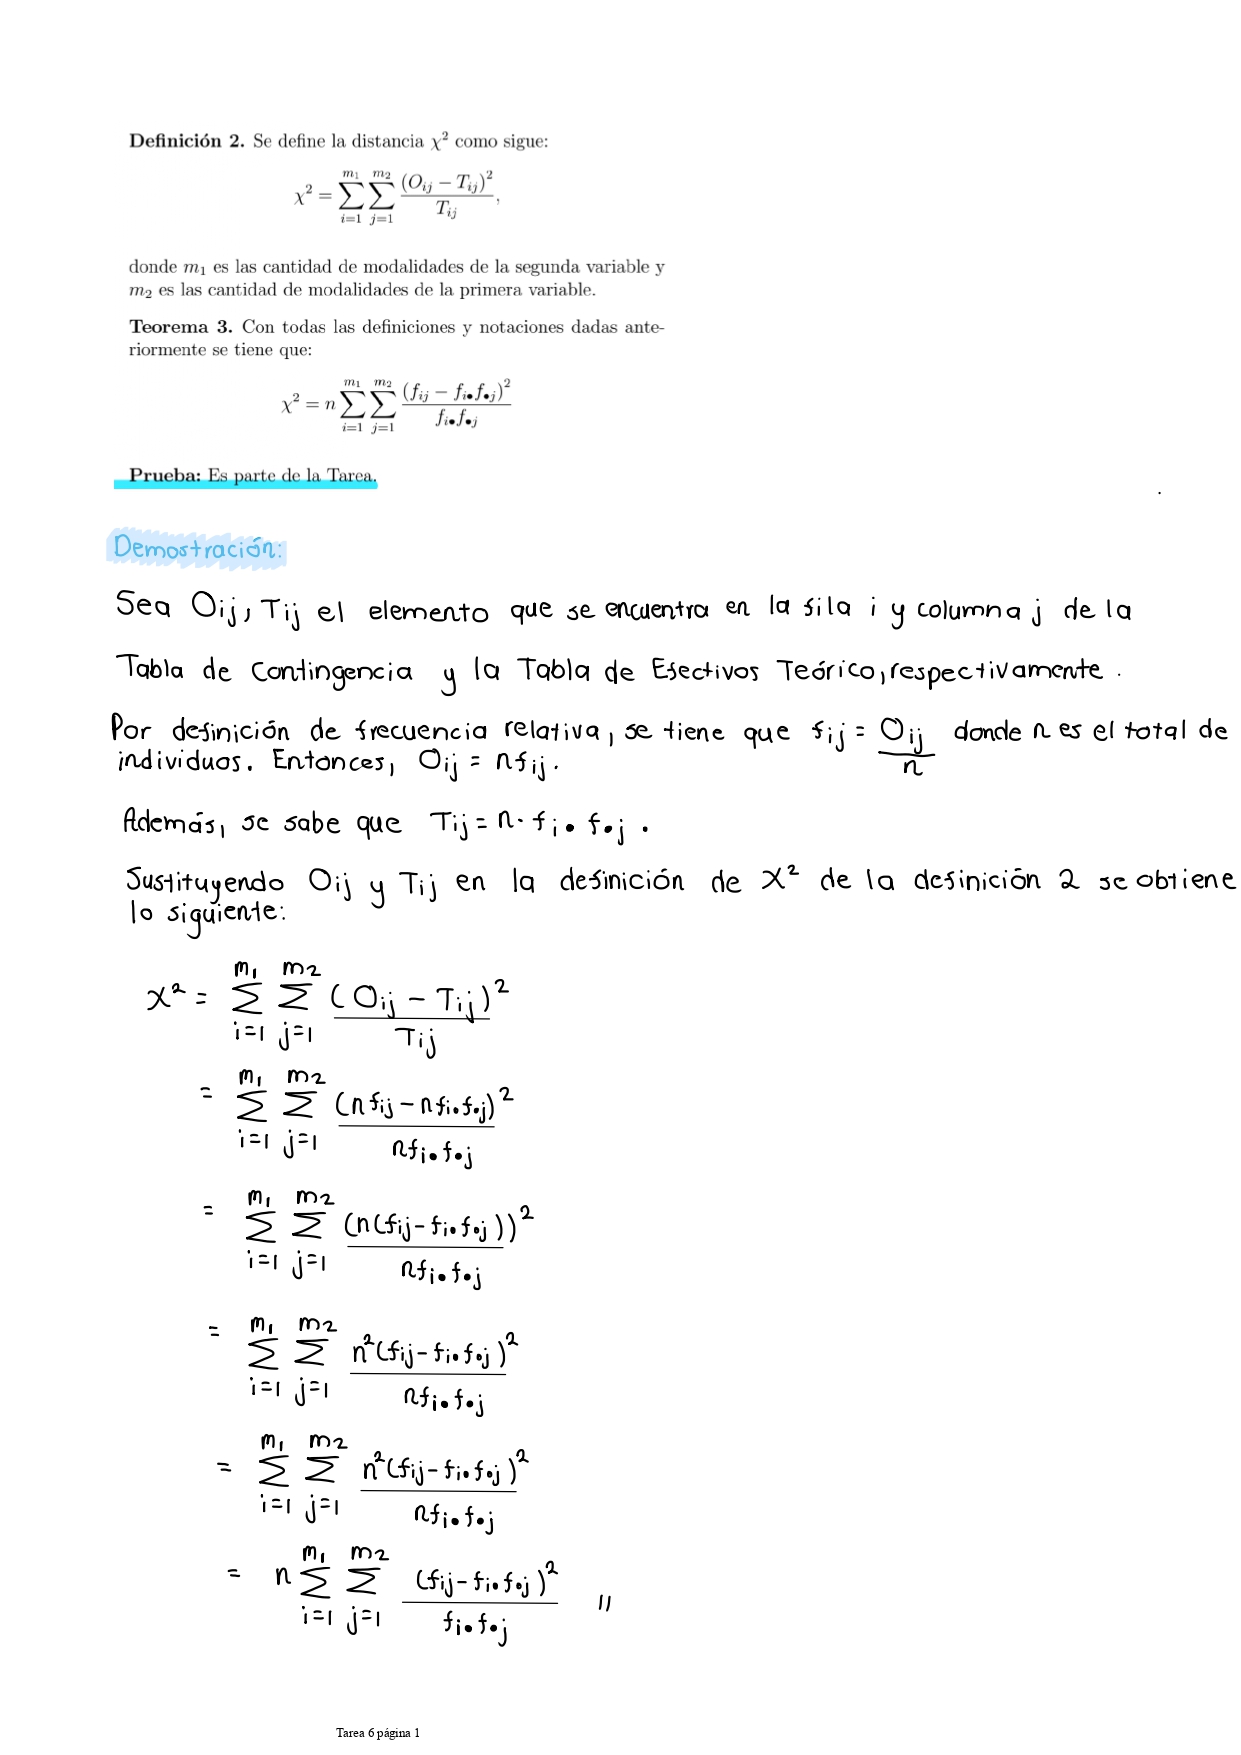 Definición 2. Se define la distancia χ² como sigue:
χ² = ∑_{i=1}^{m₁} ∑_{j=1}^{m₂} (O_{ij} − T_{ij})² / T_{ij},
donde m₁ es las cantidad de modalidades de la segunda variable y
m₂ es las cantidad de modalidades de la primera variable.
Teorema 3. Con todas las definiciones y notaciones dadas ante-
riormente se tiene que:
χ² = n ∑_{i=1}^{m₁} ∑_{j=1}^{m₂} (f_{ij} − f_{i•}f_{•j})² / f_{i•}f_{•j}
Prueba: Es parte de la Tarea.
Demostración:
Sea O_{ij}, T_{ij} el elemento que se encuentra en la fila i y columna j de la
Tabla de Contingencia y la Tabla de Efectivos Teórico, respectivamente.
Por definición de frecuencia relativa, se tiene que f_{ij} = O_{ij} / n donde n es el total de
individuos. Entonces, O_{ij} = nf_{ij}.
Además, se sabe que T_{ij} = n · f_{i•} f_{•j}.
Sustituyendo O_{ij} y T_{ij} en la definición de χ² de la definición 2 se obtiene
lo siguiente:
χ² = ∑_{i=1}^{m₁} ∑_{j=1}^{m₂} (O_{ij} − T_{ij})² / T_{ij}
= ∑_{i=1}^{m₁} ∑_{j=1}^{m₂} (nf_{ij} − nf_{i•}f_{•j})² / nf_{i•}f_{•j}
= ∑_{i=1}^{m₁} ∑_{j=1}^{m₂} (n(f_{ij} − f_{i•}f_{•j}))² / nf_{i•}f_{•j}
= ∑_{i=1}^{m₁} ∑_{j=1}^{m₂} n²(f_{ij} − f_{i•}f_{•j})² / nf_{i•}f_{•j}
= ∑_{i=1}^{m₁} ∑_{j=1}^{m₂} n²(f_{ij} − f_{i•}f_{•j})² / nf_{i•}f_{•j}
= n ∑_{i=1}^{m₁} ∑_{j=1}^{m₂} (f_{ij} − f_{i•}f_{•j})² / f_{i•}f_{•j} //
Tarea 6 página 1